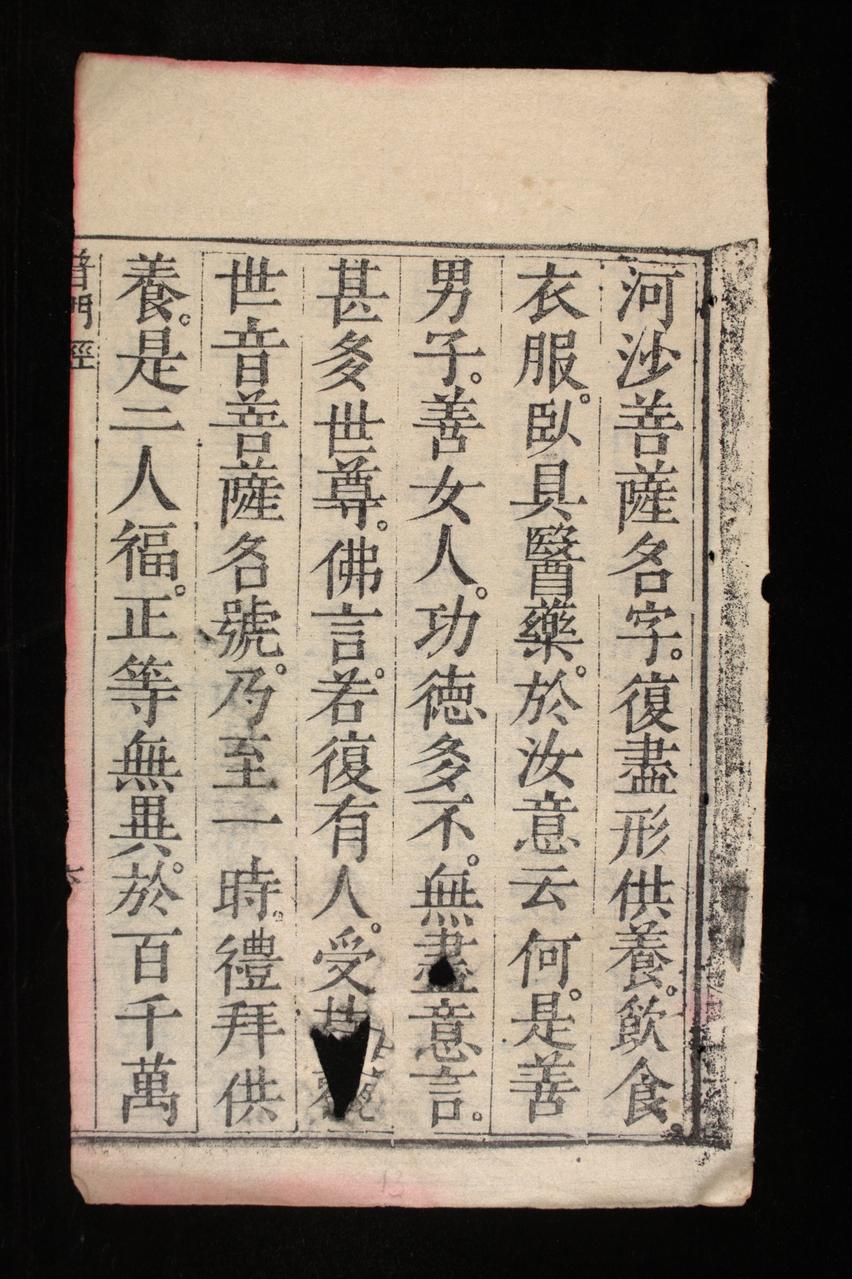 河沙菩薩名字。復盡形供養。飲食
衣服。臥具醫藥。於汝意云何。是善
男子。善女人。功德多不。無盡意言。
甚多世尊。佛言。若復有人。受
世音菩薩名號。乃至一時。禮拜供
養。是二人福。正等無異。於百千萬
普門經
六
13